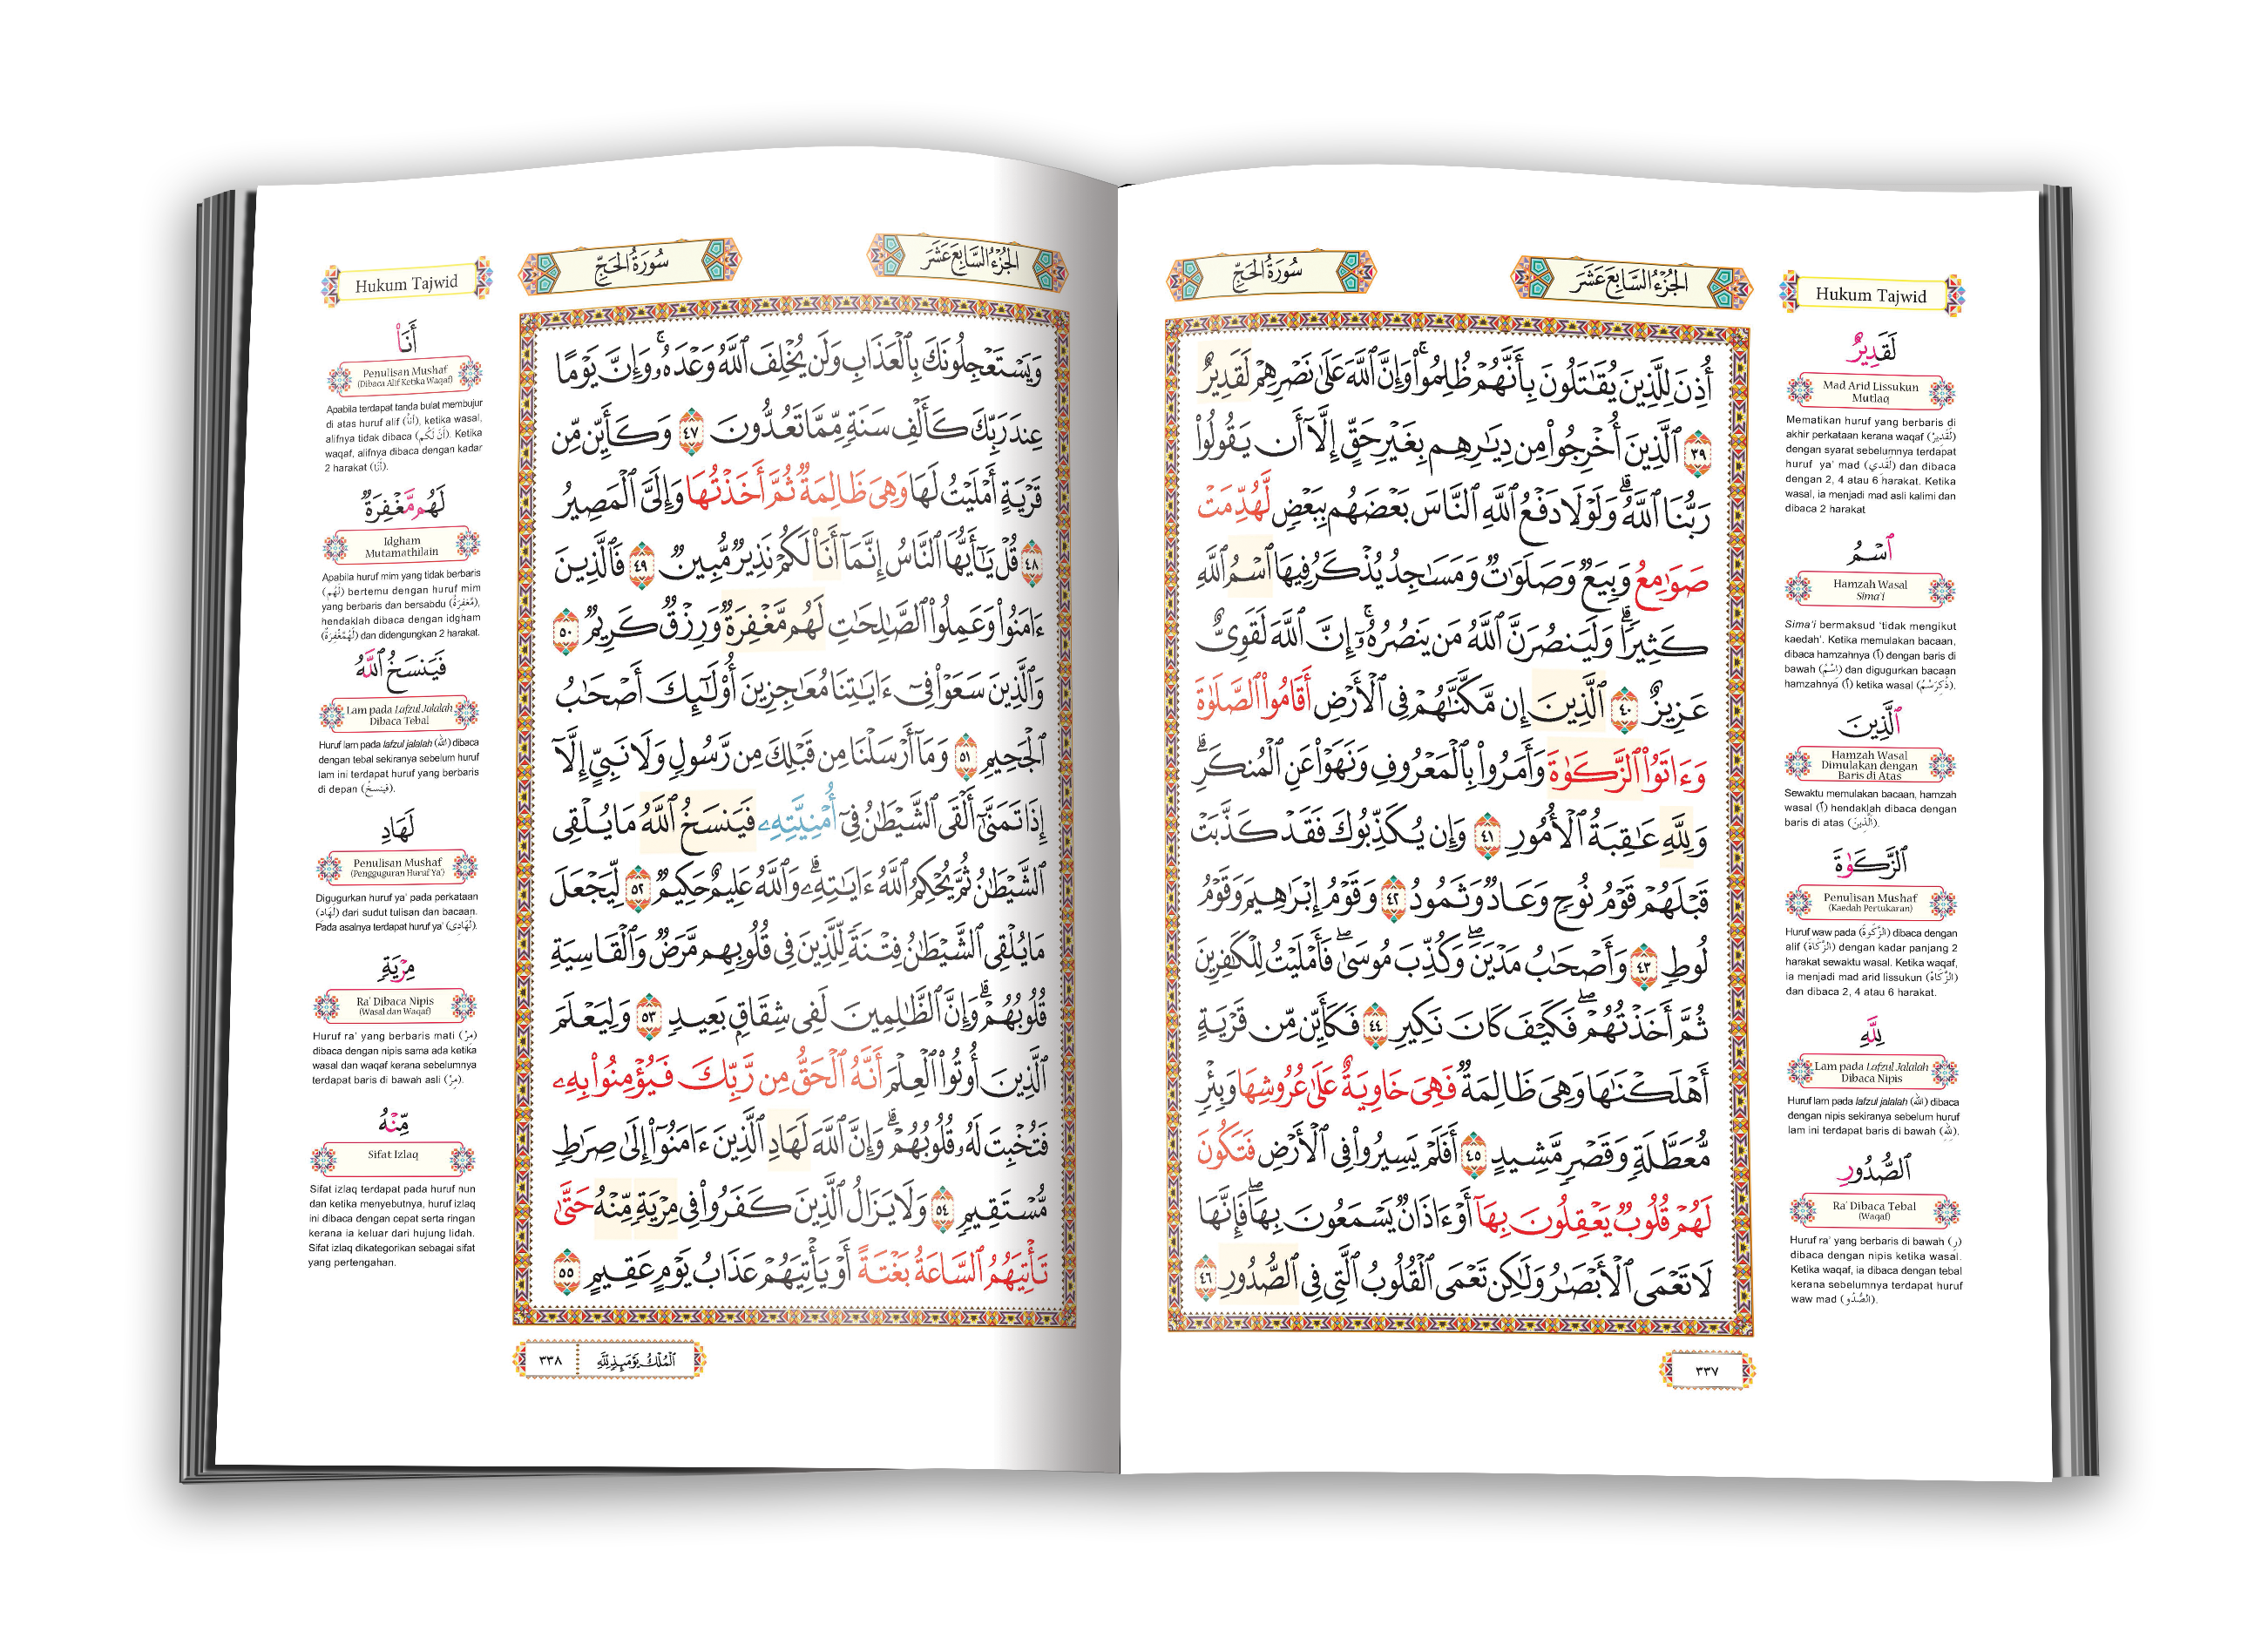 الجُزْءُ السَّابِعَ عَشَرَ
سُورَةُ الحَجِّ
أُذِنَ لِلَّذِينَ يُقَٰتَلُونَ بِأَنَّهُمْ ظُلِمُوا۟ ۚ وَإِنَّ ٱللَّهَ عَلَىٰ نَصْرِهِمْ لَقَدِيرٌ
٣٩ ٱلَّذِينَ أُخْرِجُوا۟ مِن دِيَٰرِهِم بِغَيْرِ حَقٍّ إِلَّآ أَن يَقُولُوا۟
رَبُّنَا ٱللَّهُ ۗ وَلَوْلَا دَفْعُ ٱللَّهِ ٱلنَّاسَ بَعْضَهُم بِبَعْضٍ لَّهُدِّمَتْ
صَوَٰمِعُ وَبِيَعٌ وَصَلَوَٰتٌ وَمَسَٰجِدُ يُذْكَرُ فِيهَا ٱسْمُ ٱللَّهِ
كَثِيرًا ۗ وَلَيَنصُرَنَّ ٱللَّهُ مَن يَنصُرُهُۥٓ ۗ إِنَّ ٱللَّهَ لَقَوِىٌّ
عَزِيزٌ ٤٠ ٱلَّذِينَ إِن مَّكَّنَّٰهُمْ فِى ٱلْأَرْضِ أَقَامُوا۟ ٱلصَّلَوٰةَ
وَءَاتَوُا۟ ٱلزَّكَوٰةَ وَأَمَرُوا۟ بِٱلْمَعْرُوفِ وَنَهَوْا۟ عَنِ ٱلْمُنكَرِ ۗ
وَلِلَّهِ عَٰقِبَةُ ٱلْأُمُورِ ٤١ وَإِن يُكَذِّبُوكَ فَقَدْ كَذَّبَتْ
قَبْلَهُمْ قَوْمُ نُوحٍ وَعَادٌ وَثَمُودُ ٤٢ وَقَوْمُ إِبْرَٰهِيمَ وَقَوْمُ
لُوطٍ ٤٣ وَأَصْحَٰبُ مَدْيَنَ ۖ وَكُذِّبَ مُوسَىٰ فَأَمْلَيْتُ لِلْكَٰفِرِينَ
ثُمَّ أَخَذْتُهُمْ ۖ فَكَيْفَ كَانَ نَكِيرِ ٤٤ فَكَأَيِّن مِّن قَرْيَةٍ
أَهْلَكْنَٰهَا وَهِىَ ظَالِمَةٌ فَهِىَ خَاوِيَةٌ عَلَىٰ عُرُوشِهَا وَبِئْرٍ
مُّعَطَّلَةٍ وَقَصْرٍ مَّشِيدٍ ٤٥ أَفَلَمْ يَسِيرُوا۟ فِى ٱلْأَرْضِ فَتَكُونَ
لَهُمْ قُلُوبٌ يَعْقِلُونَ بِهَآ أَوْ ءَاذَانٌ يَسْمَعُونَ بِهَا ۖ فَإِنَّهَا
لَا تَعْمَى ٱلْأَبْصَٰرُ وَلَٰكِن تَعْمَى ٱلْقُلُوبُ ٱلَّتِى فِى ٱلصُّدُورِ ٤٦
٣٣٧
Hukum Tajwid
لَقَدِيرٌ
Mad Arid Lissukun
Mutlaq
Mematikan huruf yang berbaris di
akhir perkataan kerana waqaf (لَقَدِيرْ)
dengan syarat sebelumnya terdapat
huruf ya' mad (لَقَدِي) dan dibaca
dengan 2, 4 atau 6 harakat. Ketika
wasal, ia menjadi mad asli kalimi dan
dibaca 2 harakat
ٱسْمُ
Hamzah Wasal
Sima'i
Sima'i bermaksud 'tidak mengikut
kaedah'. Ketika memulakan bacaan,
dibaca hamzahnya (ٱ) dengan baris di
bawah (اِسْمُ) dan digugurkan bacaan
hamzahnya (ٱ) ketika wasal
ٱلَّذِينَ
Hamzah Wasal
Dimulakan dengan
Baris di Atas
Sewaktu memulakan bacaan, hamzah
wasal (ٱ) hendaklah dibaca dengan
baris di atas (اَلَّذِينَ).
ٱلزَّكَوٰةَ
Penulisan Mushaf
(Kaedah Pertukaran)
Huruf waw pada (الزَّكَوةَ) dibaca dengan
alif (الزَّكَاةَ) dengan kadar panjang 2
harakat sewaktu wasal. Ketika waqaf,
ia menjadi mad arid lissukun (الزَّكَاةْ)
dan dibaca 2, 4 atau 6 harakat.
لِلَّهِ
Lam pada Lafzul Jalalah
Dibaca Nipis
Huruf lam pada lafzul jalalah (الله) dibaca
dengan nipis sekiranya sebelum huruf
lam ini terdapat baris di bawah (لِلَّهِ).
ٱلصُّدُورِ
Ra' Dibaca Tebal
(Waqaf)
Huruf ra' yang berbaris di bawah (رِ)
dibaca dengan nipis ketika wasal.
Ketika waqaf, ia dibaca dengan tebal
kerana sebelumnya terdapat huruf
waw mad (الصُّدُو).
الجُزْءُ السَّابِعَ عَشَرَ
سُورَةُ الحَجِّ
وَيَسْتَعْجِلُونَكَ بِٱلْعَذَابِ وَلَن يُخْلِفَ ٱللَّهُ وَعْدَهُۥ ۚ وَإِنَّ يَوْمًا
عِندَ رَبِّكَ كَأَلْفِ سَنَةٍ مِّمَّا تَعُدُّونَ ٤٧ وَكَأَيِّن مِّن
قَرْيَةٍ أَمْلَيْتُ لَهَا وَهِىَ ظَالِمَةٌ ثُمَّ أَخَذْتُهَا وَإِلَىَّ ٱلْمَصِيرُ
٤٨ قُلْ يَٰٓأَيُّهَا ٱلنَّاسُ إِنَّمَآ أَنَا۠ لَكُمْ نَذِيرٌ مُّبِينٌ ٤٩ فَٱلَّذِينَ
ءَامَنُوا۟ وَعَمِلُوا۟ ٱلصَّٰلِحَٰتِ لَهُم مَّغْفِرَةٌ وَرِزْقٌ كَرِيمٌ ٥٠
وَٱلَّذِينَ سَعَوْا۟ فِىٓ ءَايَٰتِنَا مُعَٰجِزِينَ أُو۟لَٰٓئِكَ أَصْحَٰبُ
ٱلْجَحِيمِ ٥١ وَمَآ أَرْسَلْنَا مِن قَبْلِكَ مِن رَّسُولٍ وَلَا نَبِىٍّ إِلَّآ
إِذَا تَمَنَّىٰٓ أَلْقَى ٱلشَّيْطَٰنُ فِىٓ أُمْنِيَّتِهِۦ فَيَنسَخُ ٱللَّهُ مَا يُلْقِى
ٱلشَّيْطَٰنُ ثُمَّ يُحْكِمُ ٱللَّهُ ءَايَٰتِهِۦ ۗ وَٱللَّهُ عَلِيمٌ حَكِيمٌ ٥٢ لِّيَجْعَلَ
مَا يُلْقِى ٱلشَّيْطَٰنُ فِتْنَةً لِّلَّذِينَ فِى قُلُوبِهِم مَّرَضٌ وَٱلْقَاسِيَةِ
قُلُوبُهُمْ ۗ وَإِنَّ ٱلظَّٰلِمِينَ لَفِى شِقَاقٍۭ بَعِيدٍ ٥٣ وَلِيَعْلَمَ
ٱلَّذِينَ أُوتُوا۟ ٱلْعِلْمَ أَنَّهُ ٱلْحَقُّ مِن رَّبِّكَ فَيُؤْمِنُوا۟ بِهِۦ
فَتُخْبِتَ لَهُۥ قُلُوبُهُمْ ۗ وَإِنَّ ٱللَّهَ لَهَادِ ٱلَّذِينَ ءَامَنُوٓا۟ إِلَىٰ صِرَٰطٍ
مُّسْتَقِيمٍ ٥٤ وَلَا يَزَالُ ٱلَّذِينَ كَفَرُوا۟ فِى مِرْيَةٍ مِّنْهُ حَتَّىٰ
تَأْتِيَهُمُ ٱلسَّاعَةُ بَغْتَةً أَوْ يَأْتِيَهُمْ عَذَابُ يَوْمٍ عَقِيمٍ ٥٥
ٱلْمُلْكُ يَوْمَئِذٍ لِلَّهِ ٣٣٨
Hukum Tajwid
أَنَا۠
Penulisan Mushaf
(Dibaca Alif Ketika Waqaf)
Apabila terdapat tanda bulat membujur
di atas huruf alif (أَنَا۠), ketika wasal,
alifnya tidak dibaca (أَنَ لَكُم). Ketika
waqaf, alifnya dibaca dengan kadar
2 harakat (أَنَا).
لَهُم مَّغْفِرَةٌ
Idgham
Mutamathilain
Apabila huruf mim yang tidak berbaris
(لَهُم) bertemu dengan huruf mim
yang berbaris dan bersabdu (مَّغْفِرَةٌ),
hendaklah dibaca dengan idgham
(لَهُمَّغْفِرَةٌ) dan didengungkan 2 harakat.
فَيَنسَخُ ٱللَّهُ
Lam pada Lafzul Jalalah
Dibaca Tebal
Huruf lam pada lafzul jalalah (الله) dibaca
dengan tebal sekiranya sebelum huruf
lam ini terdapat huruf yang berbaris
di depan (فينسخُ).
لَهَادِ
Penulisan Mushaf
(Pengguguran Huruf Ya')
Digugurkan huruf ya' pada perkataan
(لَهَادِ) dari sudut tulisan dan bacaan.
Pada asalnya terdapat huruf ya' (لَهَادِى).
مِرْيَةٍ
Ra' Dibaca Nipis
(Wasal dan Waqaf)
Huruf ra' yang berbaris mati (مِرْ)
dibaca dengan nipis sama ada ketika
wasal dan waqaf kerana sebelumnya
terdapat baris di bawah asli (مِرْ).
مِّنْهُ
Sifat Izlaq
Sifat izlaq terdapat pada huruf nun
dan ketika menyebutnya, huruf izlaq
ini dibaca dengan cepat serta ringan
kerana ia keluar dari hujung lidah.
Sifat izlaq dikategorikan sebagai sifat
yang pertengahan.